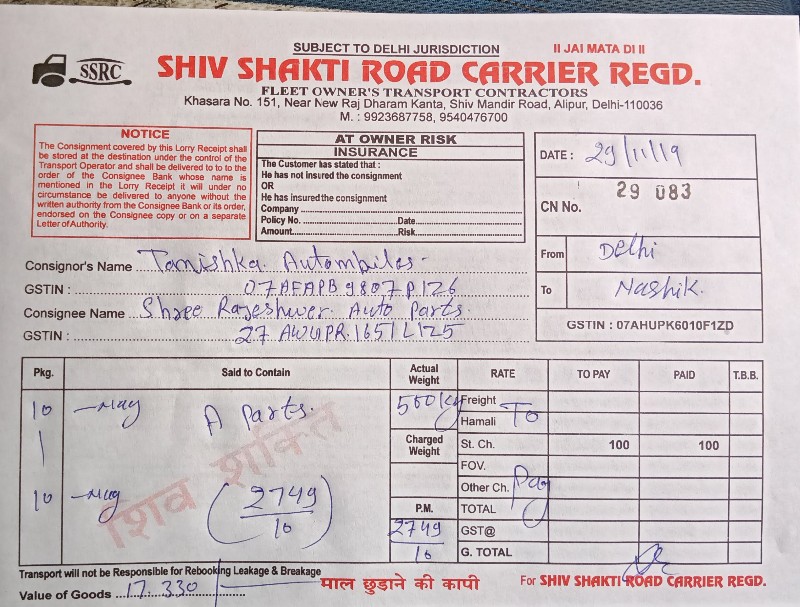 SUBJECT TO DELHI JURISDICTION
II JAI MATA DI II
SSRC
SHIV SHAKTI ROAD CARRIER REGD.
FLEET OWNER'S TRANSPORT CONTRACTORS
Khasara No. 151, Near New Raj Dharam Kanta, Shiv Mandir Road, Alipur, Delhi-110036
M. : 9923687758, 9540476700
NOTICE
The Consignment covered by this Lorry Receipt shall
be stored at the destination under the control of the
Transport Operator and shall be delivered to to to the
order of the Consignee Bank whose name is
mentioned in the Lorry Receipt it will under no
circumstance be delivered to anyone without the
written authority from the Consignee Bank or its order,
endorsed on the Consignee copy or on a separate
Letter of Authority.
AT OWNER RISK
INSURANCE
The Customer has stated that :
He has not insured the consignment
OR
He has insured the consignment
Company
Policy No. Date
Amount Risk
DATE : 29/11/19
CN No. 29 083
From Delhi
To Nashik.
GSTIN : 07AHUPK6010F1ZD
Consignor's Name Tanishka Autombiles
GSTIN : 07AFAPB9807P1Z6
Consignee Name Shree Rajeshwer Auto Parts.
GSTIN : 27AWUPR1651L1Z5
Pkg. Said to Contain Actual Weight RATE TO PAY PAID T.B.B.
10 -Nag A Parts. 500 kg Freight
Hamali To
Charged Weight St. Ch. 100 100
FOV.
Other Ch. Pay
शिव शक्ति
10 -Nag (2749/10) P.M. TOTAL
2749/10 GST@
G. TOTAL
Transport will not be Responsible for Rebooking Leakage & Breakage
Value of Goods 17330
माल छुडाने की कापी
For SHIV SHAKTI ROAD CARRIER REGD.